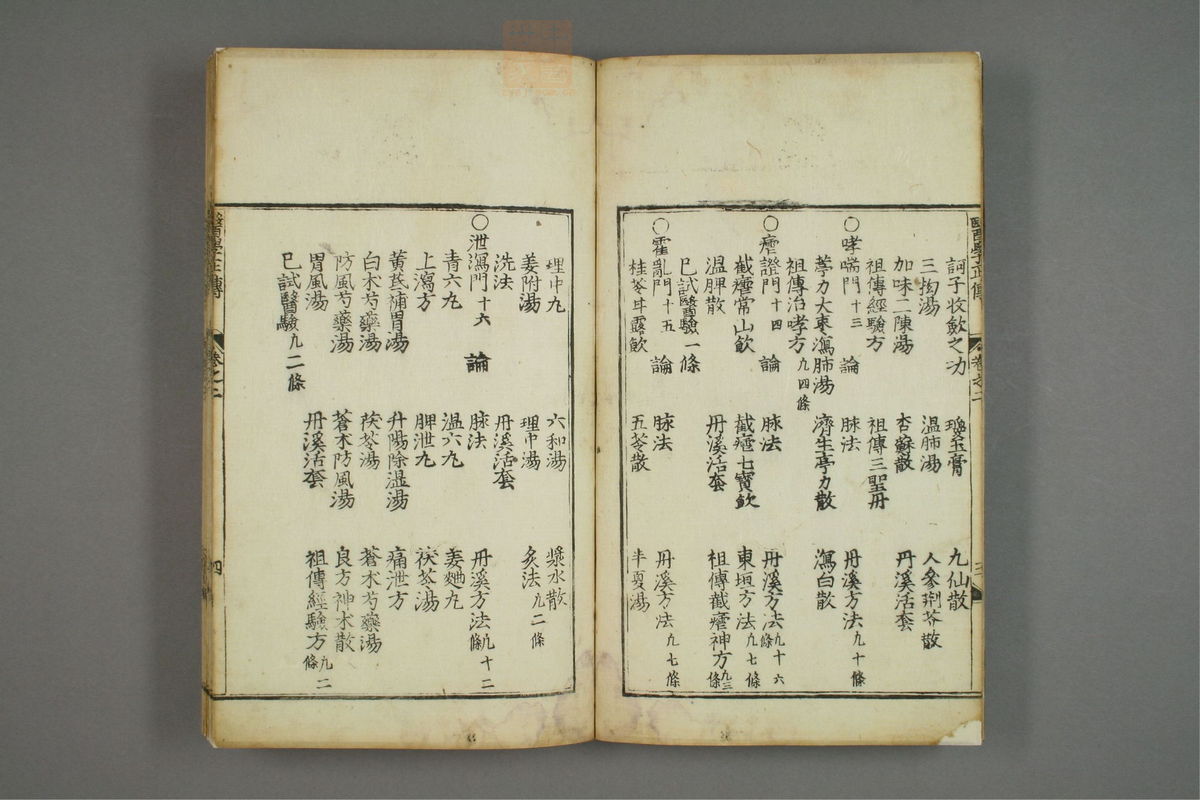 醫學正傳 卷之二
訶子收飮之功 瓊玉膏 九仙散
三拗湯 温肺湯 人參荆芥散
加味二陳湯 杏蘇散 丹溪活套
祖傳經驗方 祖傳三聖丹
〇哮喘門十三 論 脉法 丹溪方法凡十條
葶力大棗瀉肺湯 濟生葶力散 瀉白散
祖傳治哮方凡四條
〇瘧證門十四 論 脉法 丹溪方法凡十六條
截瘧常山飮 截瘧七寶飮 東垣方法凡七條
温脾散 丹溪活套 祖傳截瘧神方凡三條
已試醫驗一條
〇霍亂門十五 論 脉法 丹溪方法凡七條
桂苓甘露飮 五苓散 半夏湯
理中丸 六和湯 漿水散
姜附湯 理中湯 炙法凡二條
洗法 丹溪活套
〇泄瀉門十六 論 脉法 丹溪方法凡十二條
青六丸 温六丸 姜麯丸
上瀉方 脾泄丸 茯苓湯
黄芪補胃湯 升陽除濕湯 痛泄方
白朮芍藥湯 茯苓湯 蒼朮芍藥湯
防風芍藥湯 蒼朮防風湯 良方神朮散
胃風湯 丹溪活套 祖傳經驗方凡二條
已試醫驗凡二條
醫學正傳 卷之二 四